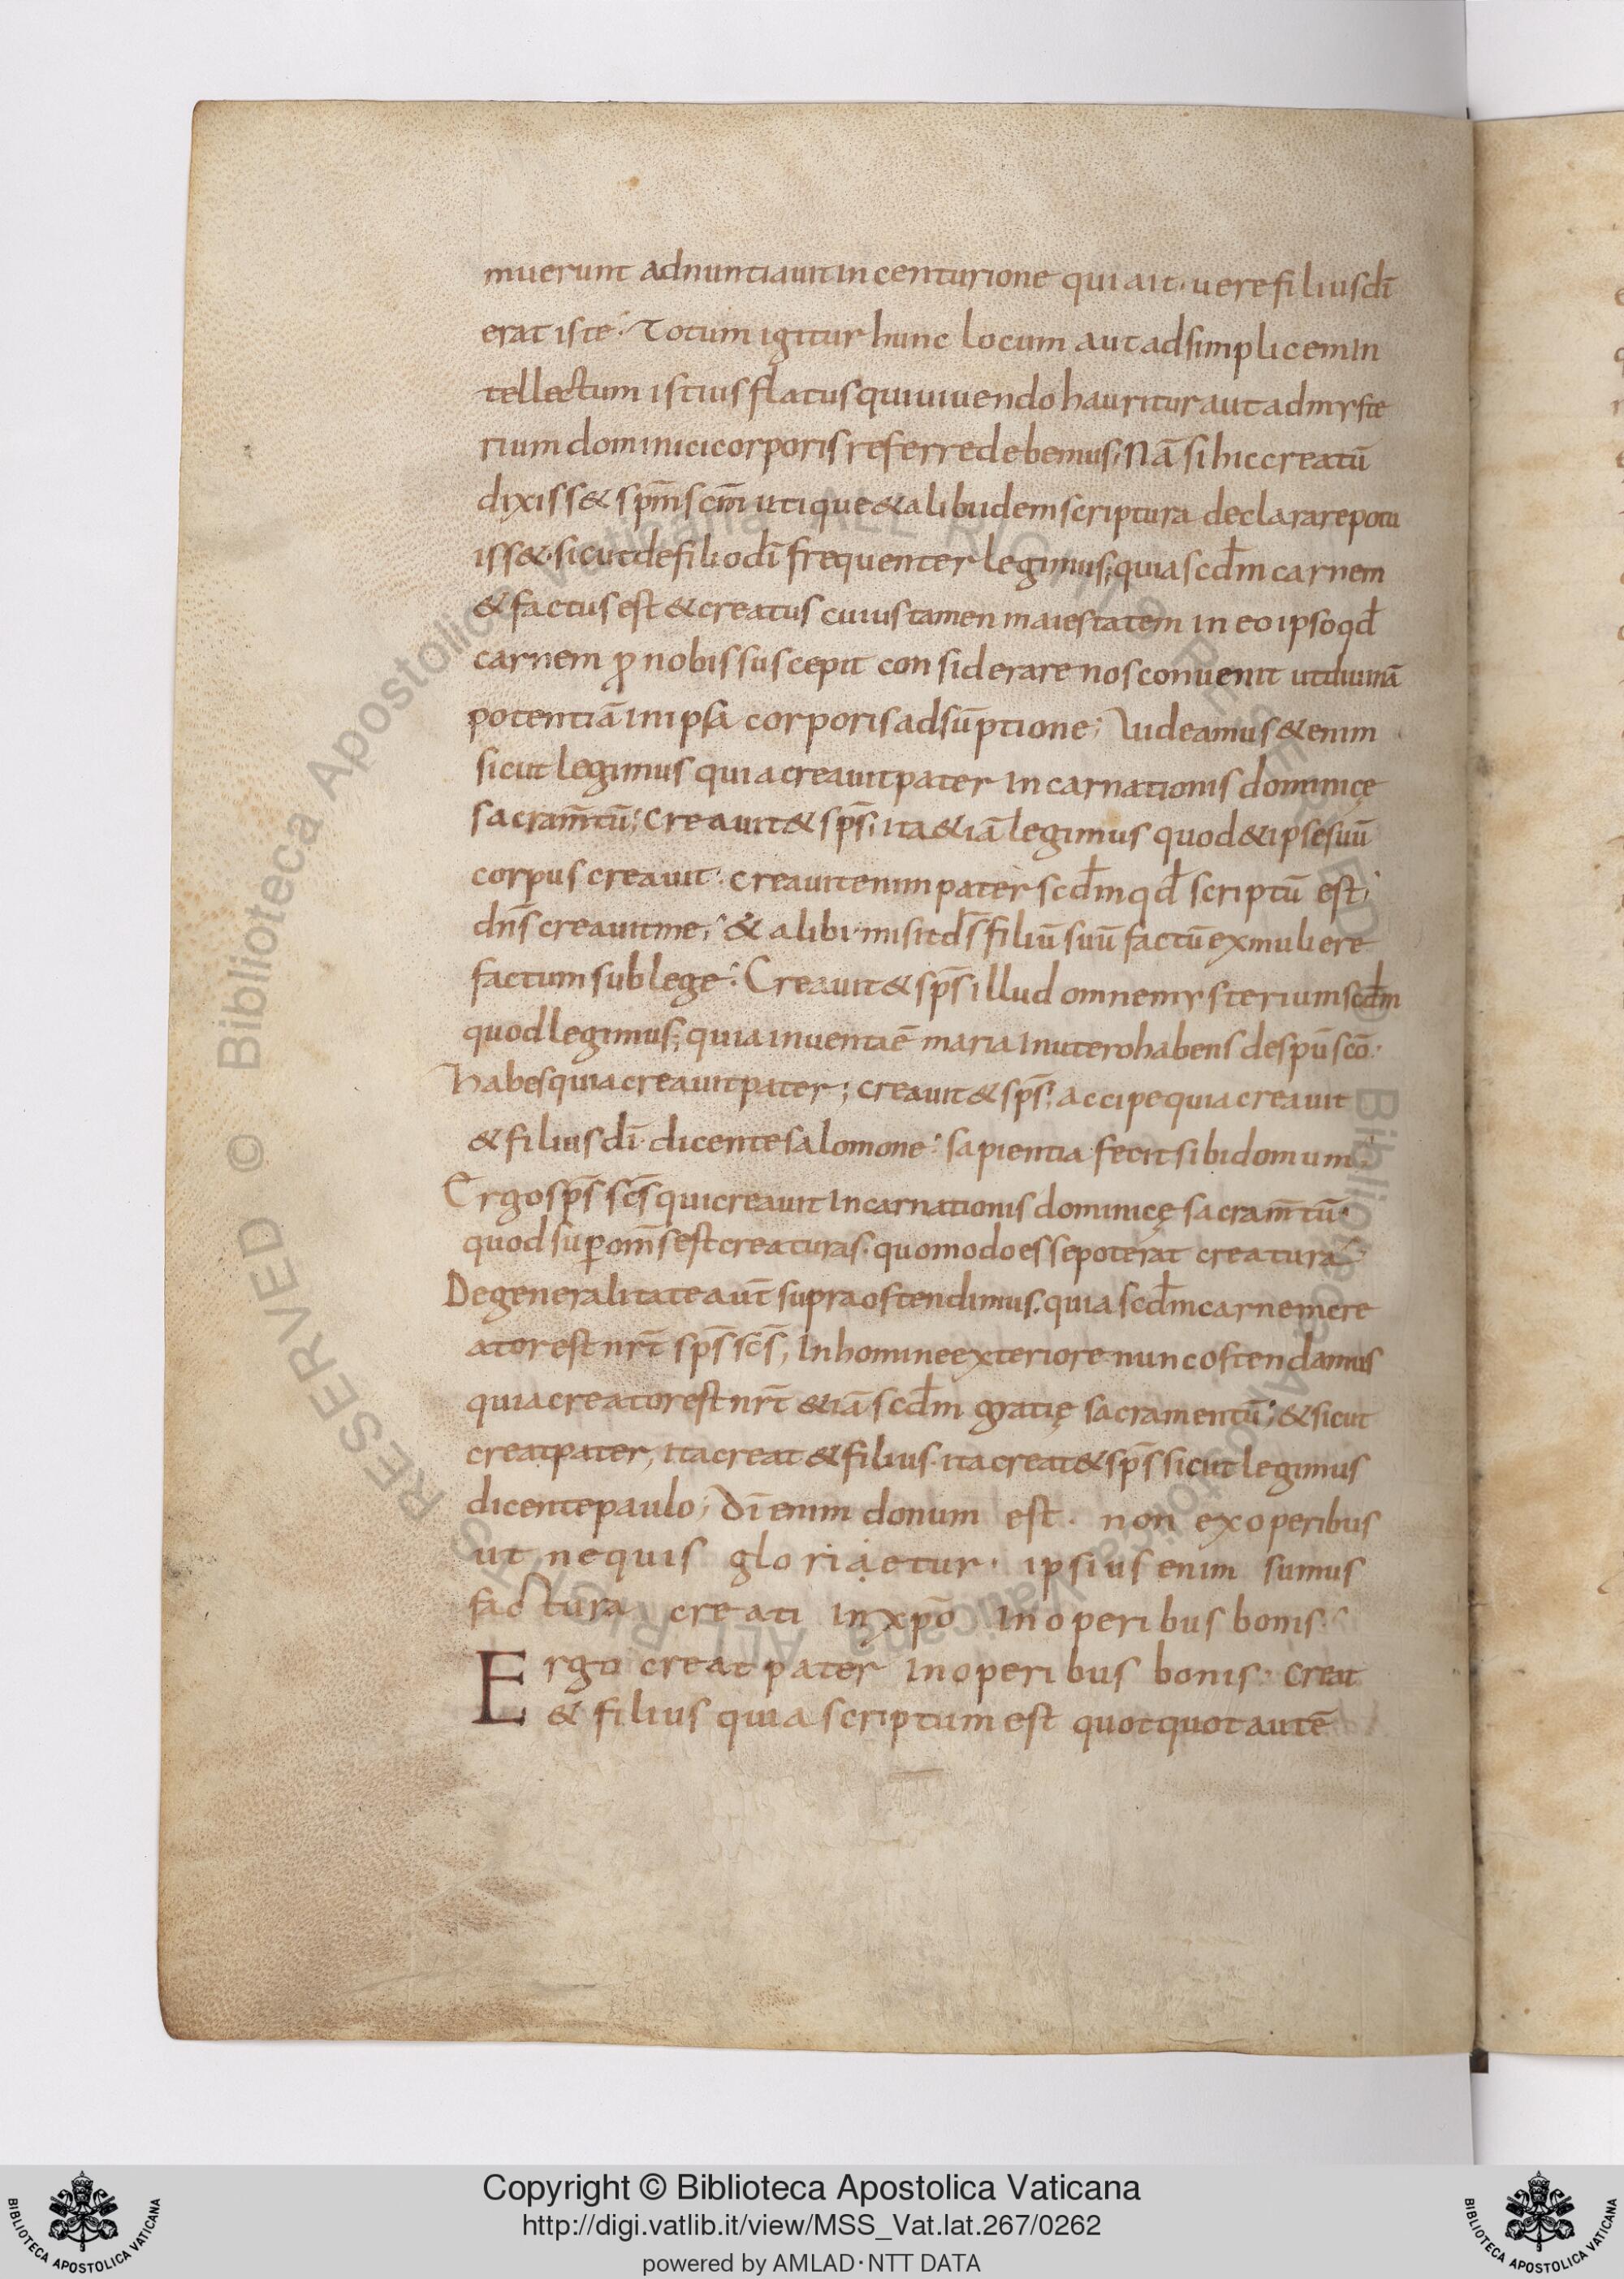 muerunt adnuntiauit in centurione qui ait · uere filius dī
erat iste · Totum igitur hunc locum aut ad simplicem in
tellectum istius flatus qui uiuendo hauritur aut ad myste
rium dominici corporis referre debemus; Nā si hic creatū
dixiss& sp̄m sc̄m utique & alibi idem scriptura declarare potu
iss& · sicut de filio dī frequenter legimus; quia scd̄m carnem
& factus est & creatus cuius tamen maiestatem in eo ipso qd̄
carnem ꝓ nobis suscepit considerare nos conuenit ut diuinā
potentiā in ipsa corporis adsūptione; Uideamus & enim
sicut legimus quia creauit pater incarnationis dominicę
sacram̄tū; Creauit & sp̄s; ita & iā legimus quod & ipse suū
corpus creauit · creauit enim pater scd̄m qd̄ scriptū est;
dn̄s creauit me; & alibi · misit ds̄ filiū suū factū ex muliere
factum sub lege; Creauit & sp̄s illud omne mysterium scd̄m
quod legimus; quia inuenta ē maria in utero habens de spū scō ·
Habes quia creauit pater; creauit & sp̄s; accipe quia creauit
& filius dī · dicente salomone · sapientia fecit sibi domum ·
Ergo sp̄s sc̄s qui creauit incarnationis dominicę sacram̄tū ·
quod suꝑ om̄s est creaturas · quomodo esse poterat creatura ·
De generalitate aūt supra ostendimus · quia scd̄m carnem cre
ator est nr̄t sp̄s sc̄s; In homine exteriore nunc ostendamus
quia creator est nr̄t & iā scd̄m gratię sacramentū; & sicut
creat pater, ita creat & filius · ita creat & sp̄s sicut legimus
dicente paulo; Dī enim donum est · non ex operibus
ut nequis gloriaetur · ipsius enim sumus
factura creati in xp̄o in operibus bonis ·
Ergo creat pater in operibus bonis · creat
& filius quia scriptum est quotquot autē
Copyright © Biblioteca Apostolica Vaticana
http://digi.vatlib.it/view/MSS_Vat.lat.267/0262
powered by AMLAD · NTT DATA
BIBLIOTECA APOSTOLICA VATICANA
BIBLIOTECA APOSTOLICA VATICANA